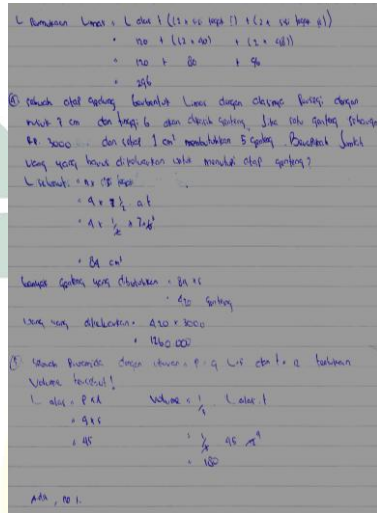 L Permukaan Limas = L alas + (2 x sisi tegak I) + (2 x sisi tegak II)
= 120 + (2 x 40) + (2 x 48)
= 120 + 80 + 96
= 296
⑥ sebuah atap gedung berbentuk Limas dengan alasnya Persegi dengan
rusuk 7 cm dan tinggi 6 akan dipasang genteng. Jika satu genteng seharga
Rp. 3000 dan setiap 1 cm² membutuhkan 5 genteng. Berapakah Jumlah
uang yang harus dikeluarkan untuk menutupi atap genteng?
L selimut = n x
= 4 x 1/2 a t
= 4 x 1/2 x 7 x 6
= 84 cm²
banyak genteng yang dibutuhkan = 84 x 5
= 420 genteng
uang yang dikeluarkan = 420 x 3000
= 1260 000
⑦ sebuah Piramida dengan ukuran P = 9 L = 5 dan t = 12 tentukan
Volume tersebut!
L alas = P x L Volume = 1/3 L alas . t
= 9 x 5 = 1/3 45 12
= 45 = 180
Ada, no 1.